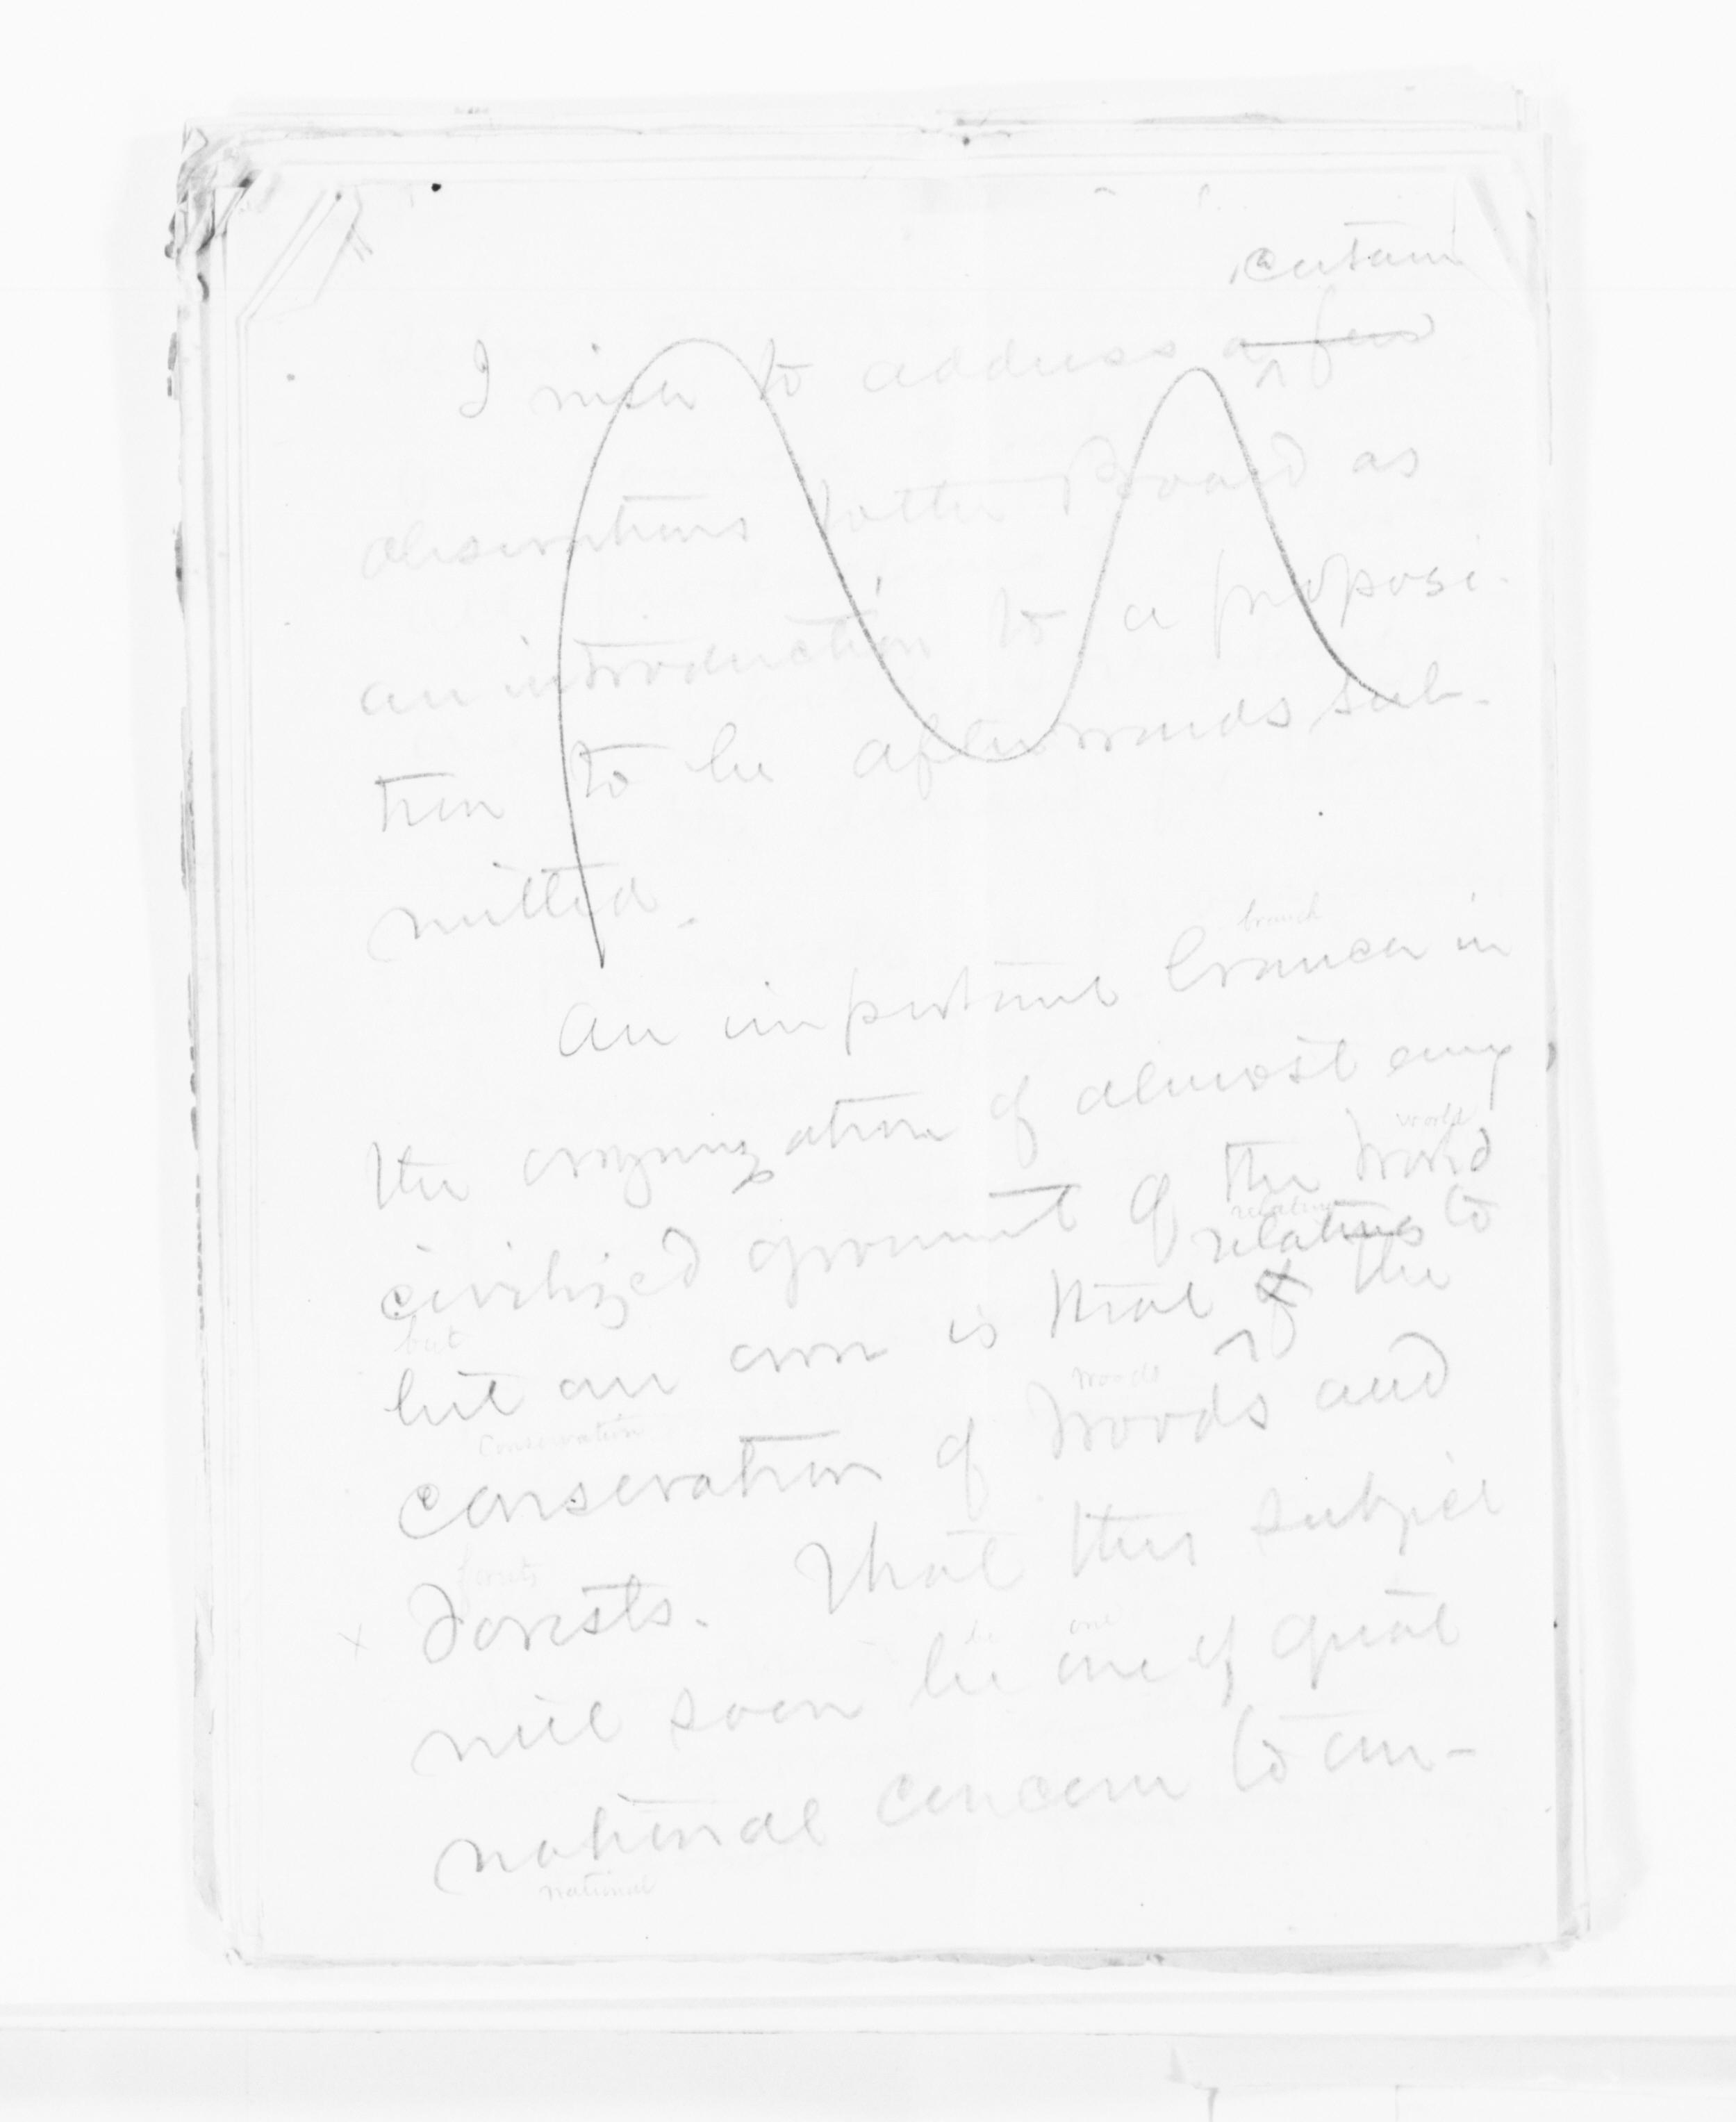 certain
I wish to address a few
observations to the Board as
an introduction to a proposi-
tion to be afterwards sub-
mitted.
branch
An important branch in
the organization of almost every
world
civilized government of the world
relating
relating to
but our own is that of the
but
woods
conservation of woods and
Conservation
forests
Forests. That this subject
x
be one
will soon be one of great
national concern to our-
national